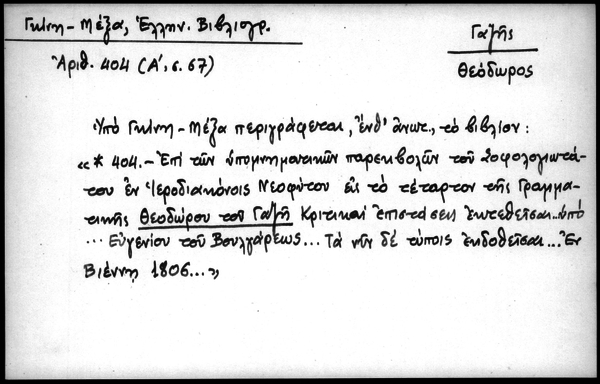 Γκίνη - Μέξα, Ἑλλην. Βιβλιογρ.
Γαζῆς
Ἀριθ. 404 (Α', σ. 67)
Θεόδωρος
Ὑπό Γκίνη - Μέξα περιγράφεται, ἔνθ' ἄνωτ., τό βιβλίον:
«* 404. - Ἐπί τῶν ὑπομνηματικῶν παρεκβολῶν τοῦ Σοφολογιωτά-
του ἐν Ἱεροδιακόνοις Νεοφύτου εἰς τό τέταρτον τῆς Γραμμα-
τικῆς Θεοδώρου τοῦ Γαζῆ Κριτικαί ἐπιστάσεις ἐκτεθεῖσαι..ὑπό
... Εὐγενίου τοῦ Βουλγάρεως... Τά νῦν δέ τύποις ἐκδοθεῖσαι... Ἐν
Βιέννῃ 1806...»